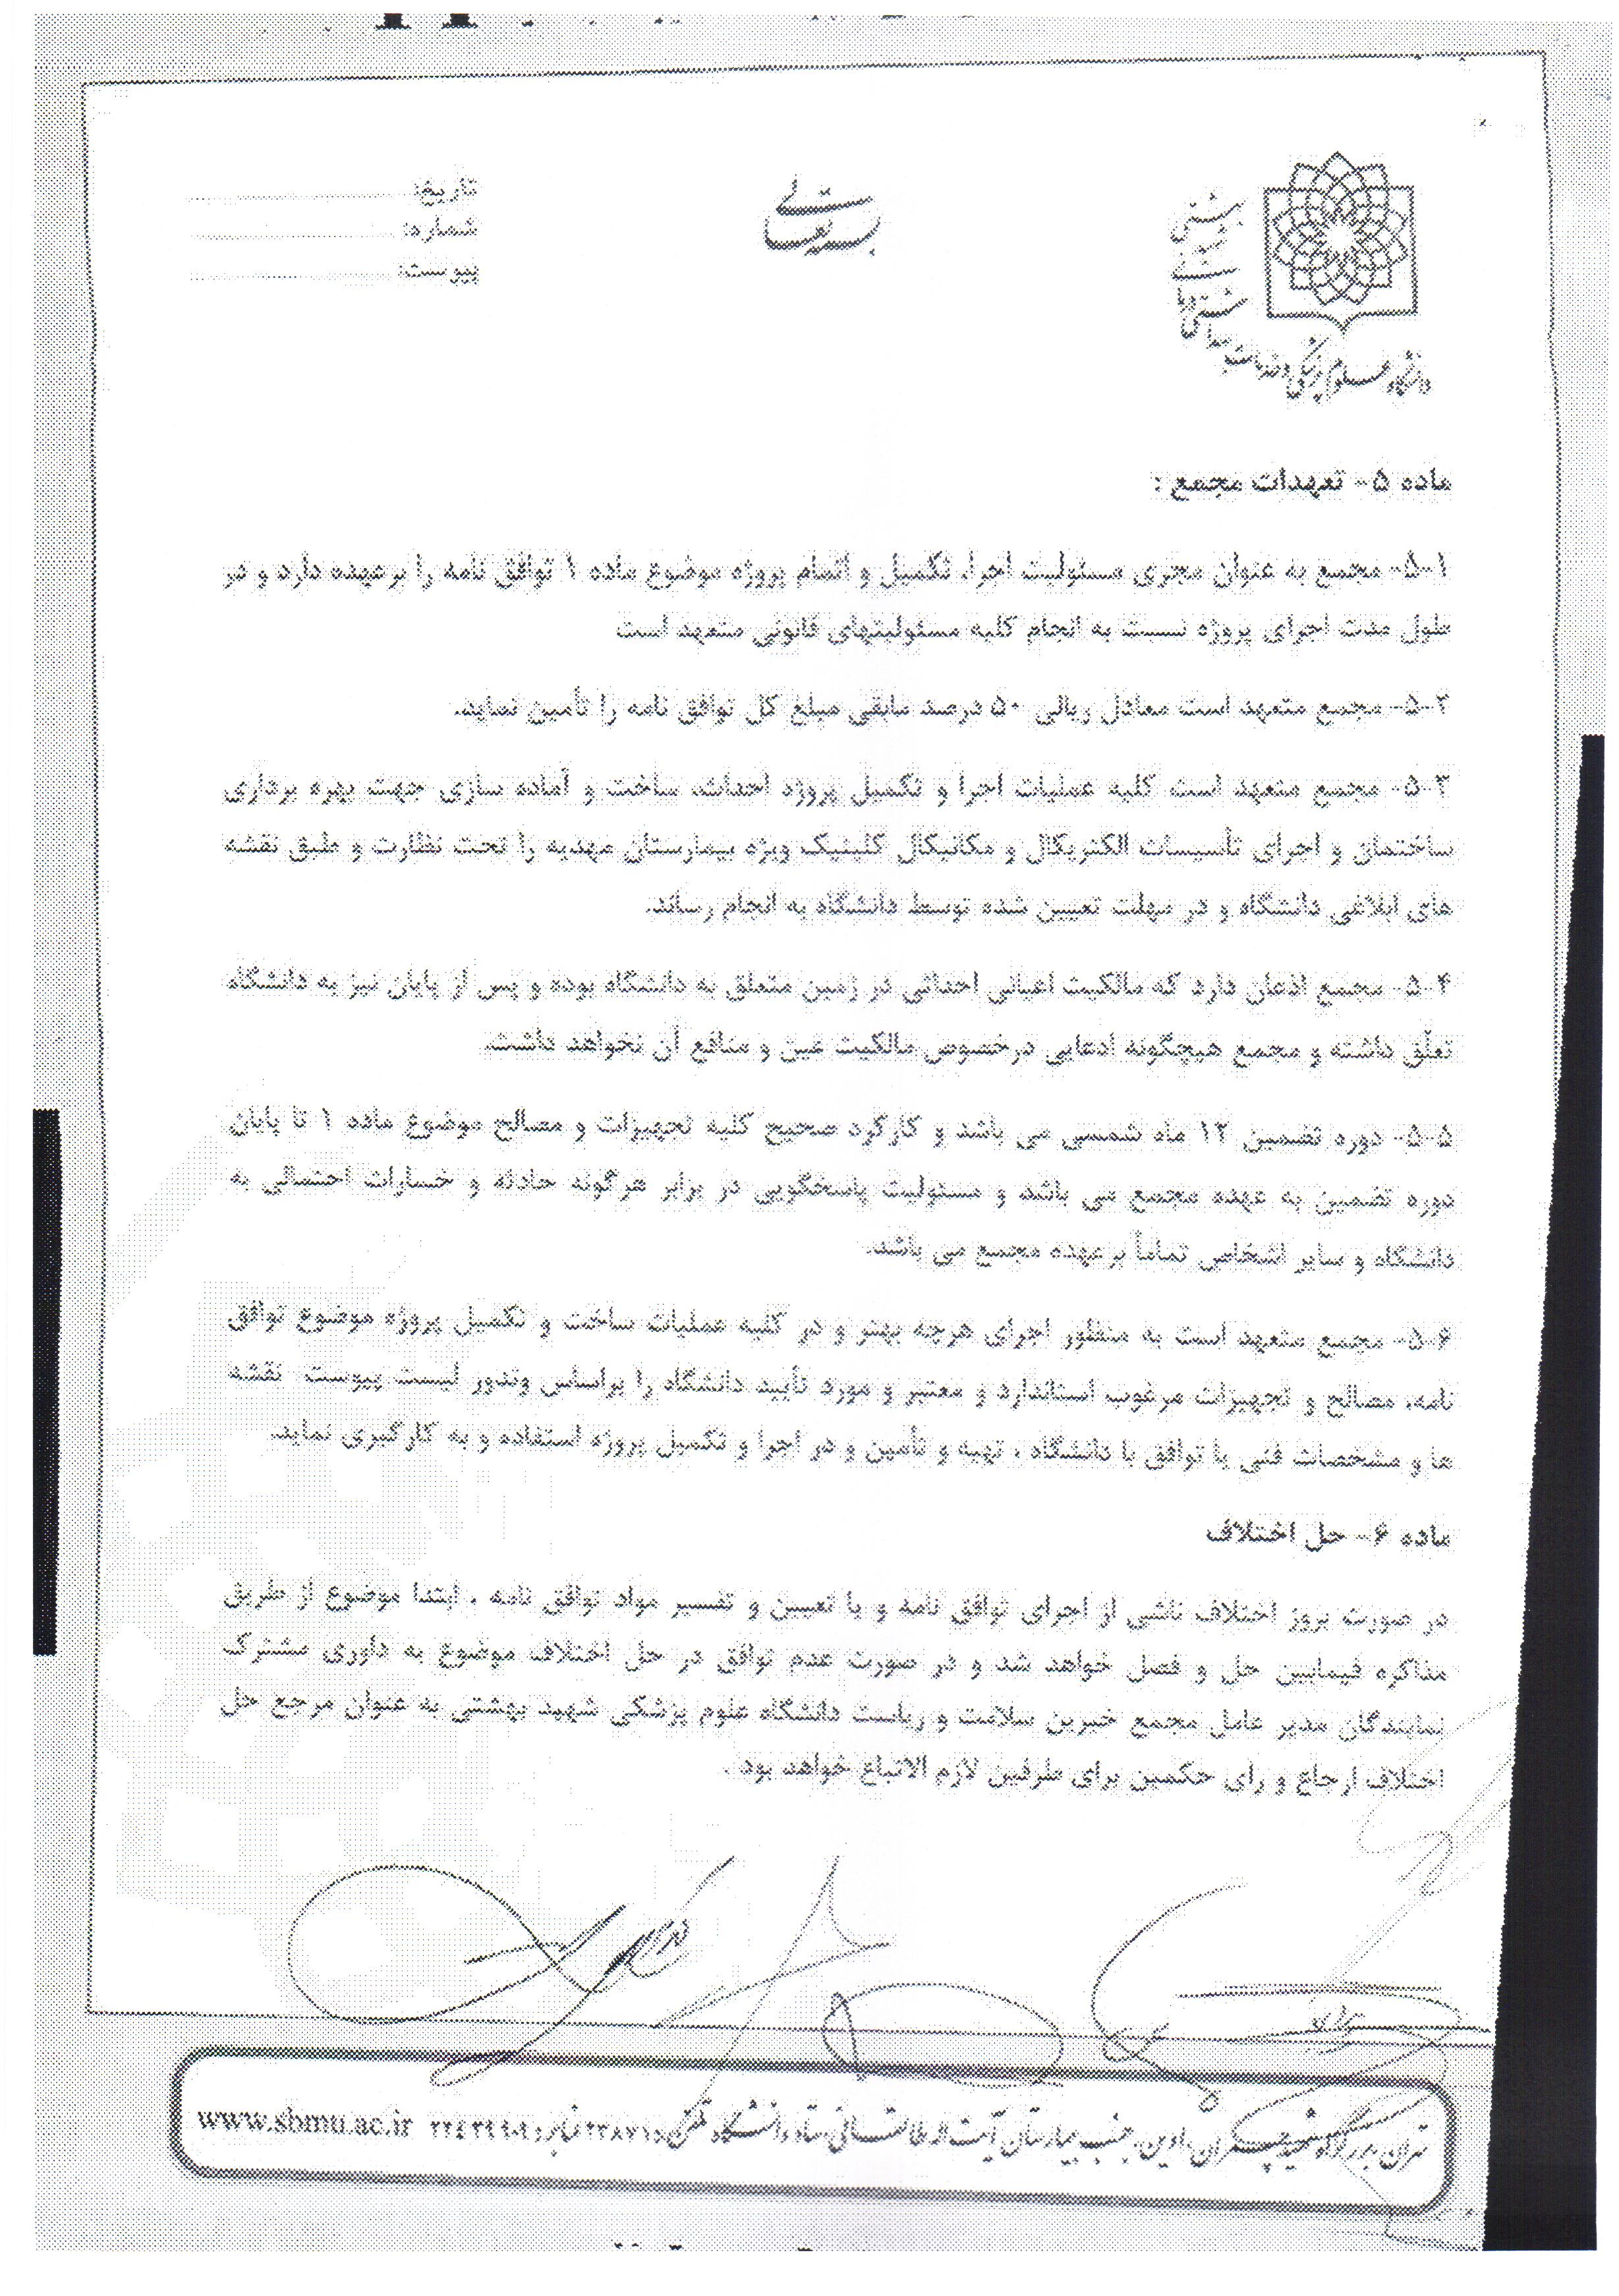 بسمه تعالی
تاریخ:
شماره:
پیوست:
دانشگاه علوم پزشکی و خدمات بهداشتی درمانی شهید بهشتی
ماده ۵- تعهدات مجمع :
۵-۱- مجمع به عنوان مجری مسئولیت اجرا، تکمیل و اتمام پروژه موضوع ماده ۱ توافق نامه را برعهده دارد و در
طول مدت اجرای پروژه نسبت به انجام کلیه مسئولیتهای قانونی متعهد است
۵-۲- مجمع متعهد است معادل ریالی ۵۰ درصد مابقی مبلغ کل توافق نامه را تأمین نماید.
۵-۳- مجمع متعهد است کلیه عملیات اجرا و تکمیل پروژه احداث، ساخت و آماده سازی جهت بهره برداری
ساختمان و اجرای تأسیسات الکتریکال و مکانیکال کلینیک ویژه بیمارستان مهدیه را تحت نظارت و طبق نقشه
های ابلاغی دانشگاه و در مهلت تعیین شده توسط دانشگاه به انجام رساند.
۵-۴- مجمع اذعان دارد که مالکیت اعیانی احداثی در زمین متعلق به دانشگاه بوده و پس از پایان نیز به دانشگاه
تعلّق داشته و مجمع هیچگونه ادعایی درخصوص مالکیت عین و منافع آن نخواهد داشت.
۵-۵- دوره تضمین ۱۲ ماه شمسی می باشد و کارکرد صحیح کلیه تجهیزات و مصالح موضوع ماده ۱ تا پایان
دوره تضمین به عهده مجمع می باشد و مسئولیت پاسخگویی در برابر هرگونه حادثه و خسارات احتمالی به
دانشگاه و سایر اشخاص تماماً برعهده مجمع می باشد.
۵-۶- مجمع متعهد است به منظور اجرای هرچه بهتر و در کلیه عملیات ساخت و تکمیل پروژه موضوع توافق
نامه، مصالح و تجهیزات مرغوب استاندارد و معتبر و مورد تأیید دانشگاه را براساس وندور لیست پیوست نقشه
ها و مشخصات فنی یا توافق با دانشگاه ، تهیه و تأمین و در اجرا و تکمیل پروژه استفاده و به کارگیری نماید.
ماده ۶- حل اختلاف
در صورت بروز اختلاف ناشی از اجرای توافق نامه و یا تعیین و تفسیر مواد توافق نامه ، ابتدا موضوع از طریق
مذاکره فیمابین حل و فصل خواهد شد و در صورت عدم توافق در حل اختلاف موضوع به داوری مشترک
نمایندگان مدیر عامل مجمع خیرین سلامت و ریاست دانشگاه علوم پزشکی شهید بهشتی به عنوان مرجع حل
اختلاف ارجاع و رای حکمین برای طرفین لازم الاتباع خواهد بود .
تهران، بزرگراه شهید چمران، اوین، جنب بیمارستان آیت اله طالقانی، ستاد دانشگاه، تلفن: ۲۳۸۷۱ نمابر: www.sbmu.ac.ir